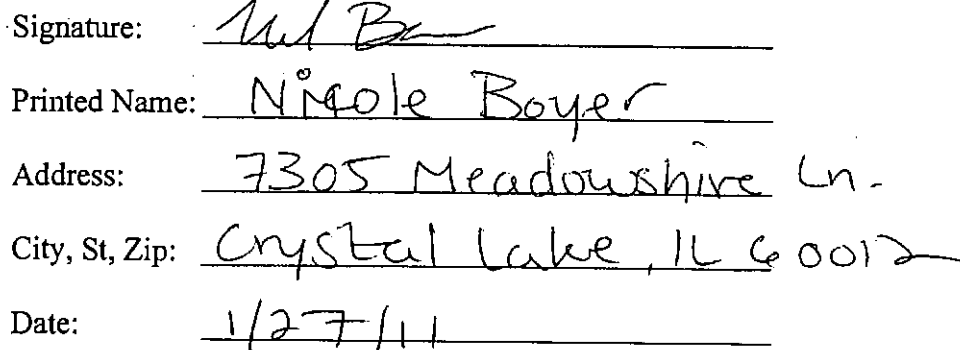 Signature:
Printed Name: Nicole Boyer
Address: 7305 Meadowshire Ln.
City, St, Zip: Crystal Lake, IL 60012
Date: 1/27/11